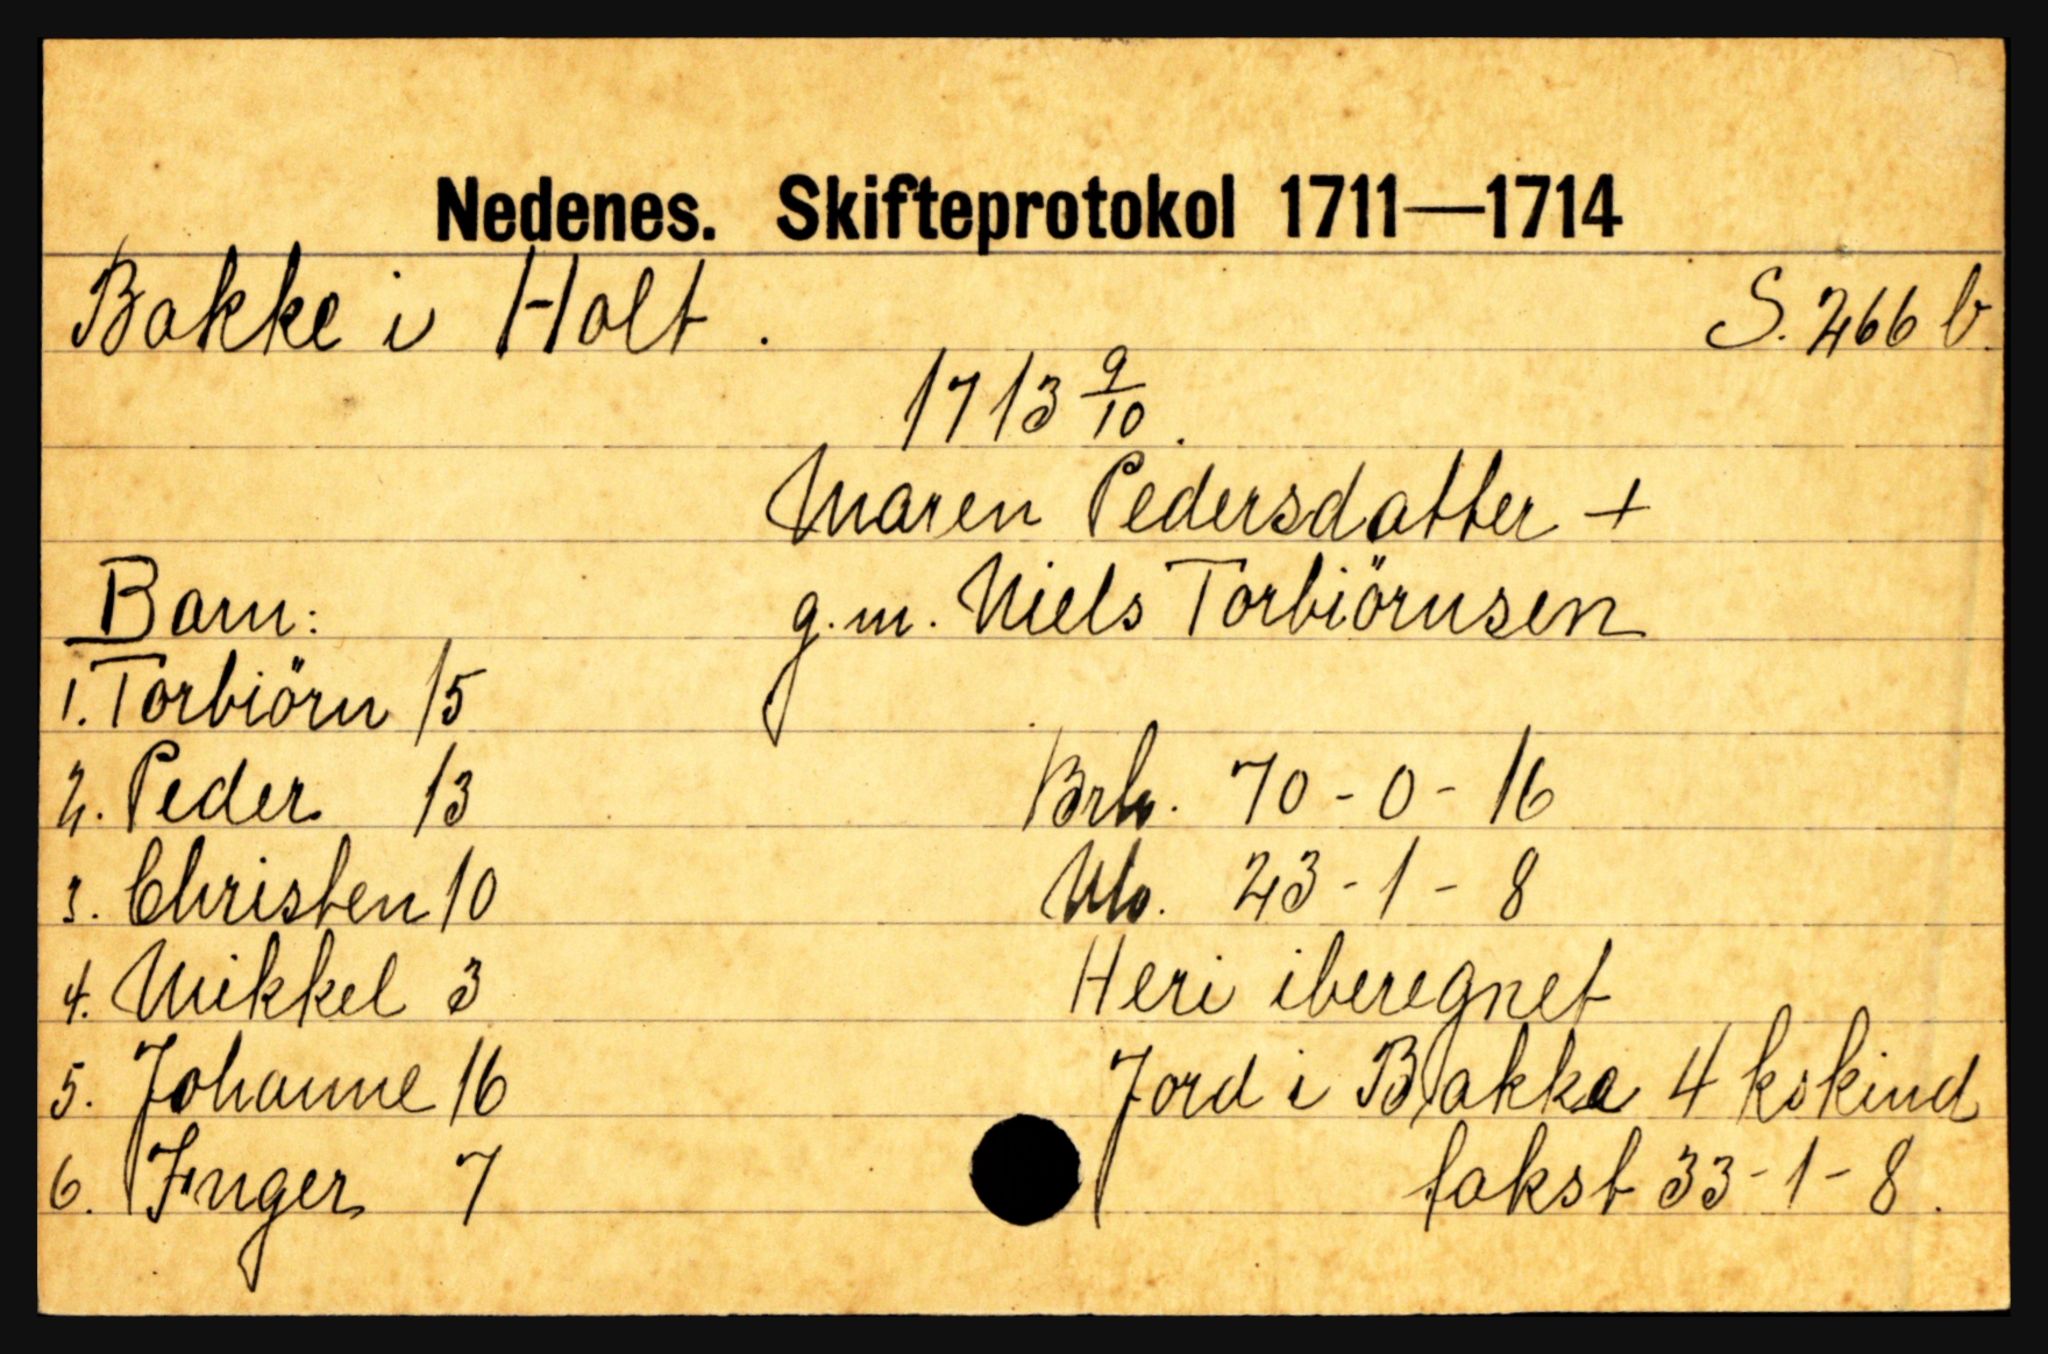 Nedenes. Skifteprotokol 1711—1714
Bakke i Holt. S. 266 b.
1713 9/10.
Maren Pedersdatter +
Barn: g.m. Niels Torbiörnsen
1. Torbiörn 15
2. Peder 13 Brb. 70-0-16
3. Christen 10 Nb. 23-1-8
4. Mikkel 3 Heri iberegnet
5. Johanne 16 Jord i Bakke 4 kskind
6. Inger 7 takst 33-1-8.